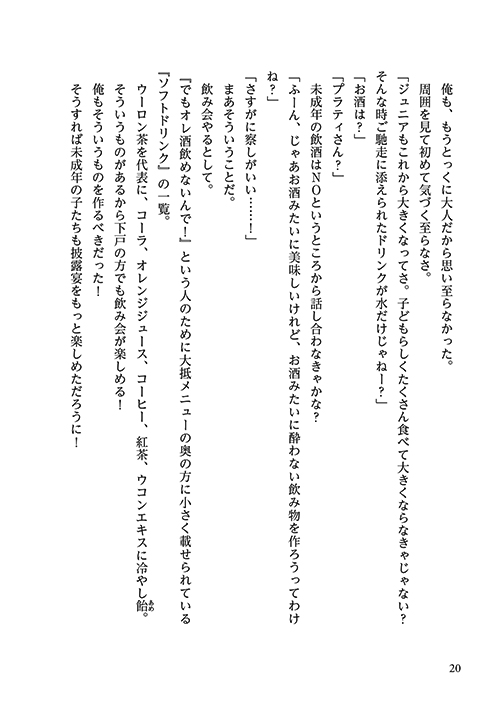 俺も、もうとっくに大人だから思い至らなかった。
周囲を見て初めて気づく至らなさ。
「ジュニアもこれから大きくなってさ。子どもらしくたくさん食べて大きくならなきゃじゃない？
そんな時ご馳走に添えられたドリンクが水だけじゃねー？」
「お酒は？」
「プラティさん？」
未成年の飲酒はNOというところから話し合わなきゃかな？
「ふーん、じゃあお酒みたいに美味しいけれど、お酒みたいに酔わない飲み物を作ろうってわけ
ね？」
「さすがに察しがいい……！」
まあそういうことだ。
飲み会やるとして。
『でもオレ酒飲めないんで！』という人のために大抵メニューの奥の方に小さく載せられている
『ソフトドリンク』の一覧。
ウーロン茶を代表に、コーラ、オレンジジュース、コーヒー、紅茶、ウコンエキスに冷やし飴。
あめ
そういうものがあるから下戸の方でも飲み会が楽しめる！
俺もそういうものを作るべきだった！
そうすれば未成年の子たちも披露宴をもっと楽しめただろうに！
20